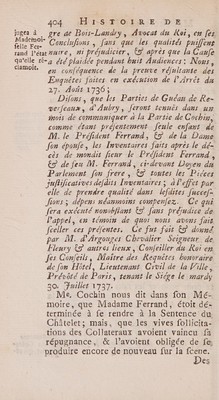 404 HISTOIRE DE
juges à
Mademoi-
selle Fer-
rand l'état
qu'elle ré-
clamoit.
gre de Bois-Landry, Avocat du Roi, en ses
Conclusions, sans que les qualités puissent
nuire, ni préjudicier, & après que la Cause
a été plaidée pendant huit Audiences: Nous,
en conséquence de la preuve résultante des
Enquêtes faites en exécution de l'Arrêt du
27. Août 1736;
Disons, que les Parties de Guéau de Re-
verseaux, d'Aubry, seront tenuës dans un
mois de communiquer à la Partie de Cochin,
comme étant présentement seule enfant de
M. le Président Ferrand, & de la Dame
son épouse, les Inventaires faits après le dé-
cès de mondit sieur le Président Ferrand,
& de feu M. Ferrand, ci-devant Doyen du
Parlement son frere, & toutes les Piéces
justificatives desdits Inventaires; à l'effet par
elle de prendre qualité dans lesdites succes-
sions; dépens néanmoins compensez. Ce qui
sera exécuté nonobstant & sans préjudice de
l'appel, en témoin de quoi nous avons fait
sceller ces présentes. Ce fut fait & donné
par M. d'Argouges Chevalier Seigneur de
Fleury & autres lieux, Conseiller du Roi en
ses Conseils, Maître des Requêtes honoraire
de son Hôtel, Lieutenant Civil de la Ville,
Prévôté de Paris, tenant le Siége le mardy
30. Juillet 1737.
Me. Cochin nous dit dans son Mé-
moire, que Madame Ferrand, étoit dé-
terminée à se rendre à la Sentence du
Châtelet; mais, que les vives sollicita-
tions des Collateraux avoient vaincu sa
répugnance, & l'avoient obligée de se
produire encore de nouveau sur la scene.
Des